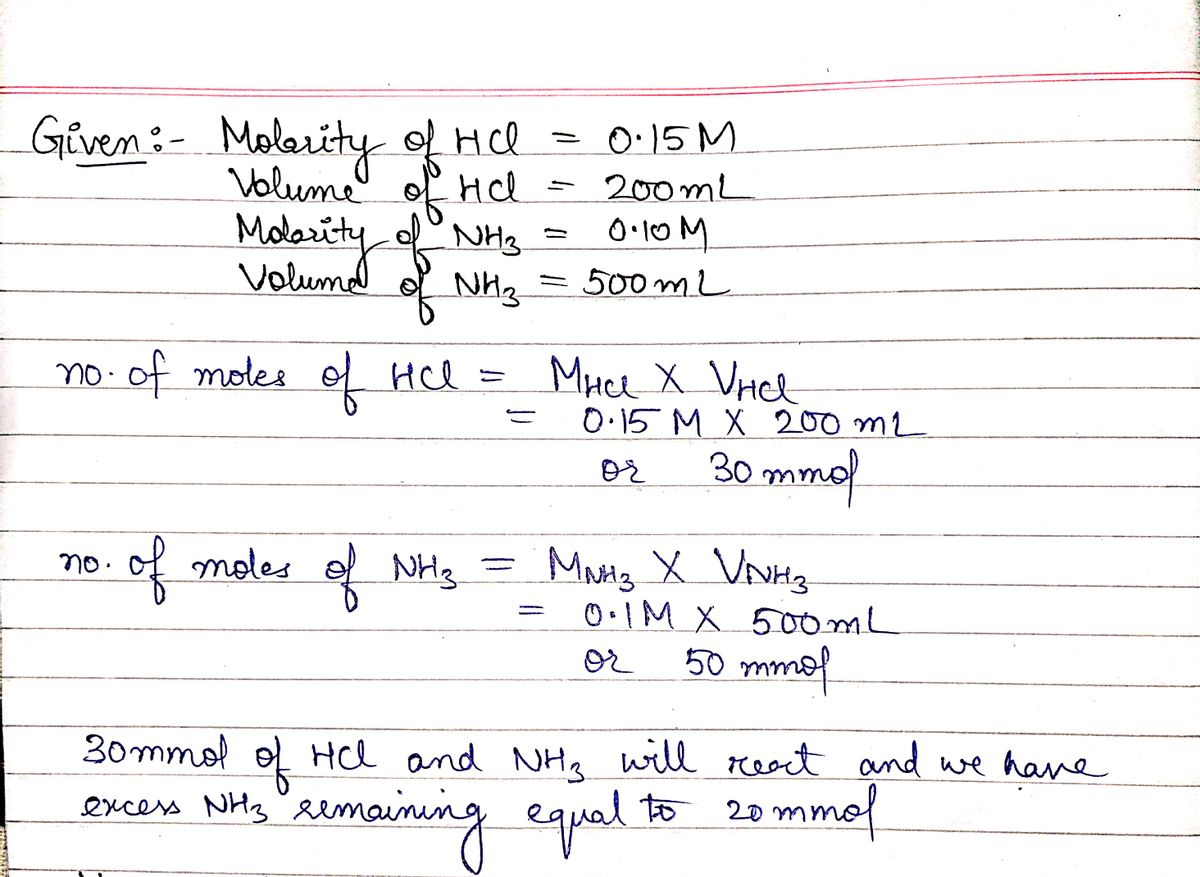 Given :- Molarity of HCl = 0.15 M
Volume of HCl = 200 mL
Molarity of NH3 = 0.10 M
Volume of NH3 = 500 mL
no. of moles of HCl = MHCl X VHCl
= 0.15 M X 200 mL
or 30 mmol
no. of moles of NH3 = MNH3 X VNH3
= 0.1M X 500mL
or 50 mmol
30mmol of HCl and NH3 will react and we have
excess NH3 remaining equal to 20 mmol